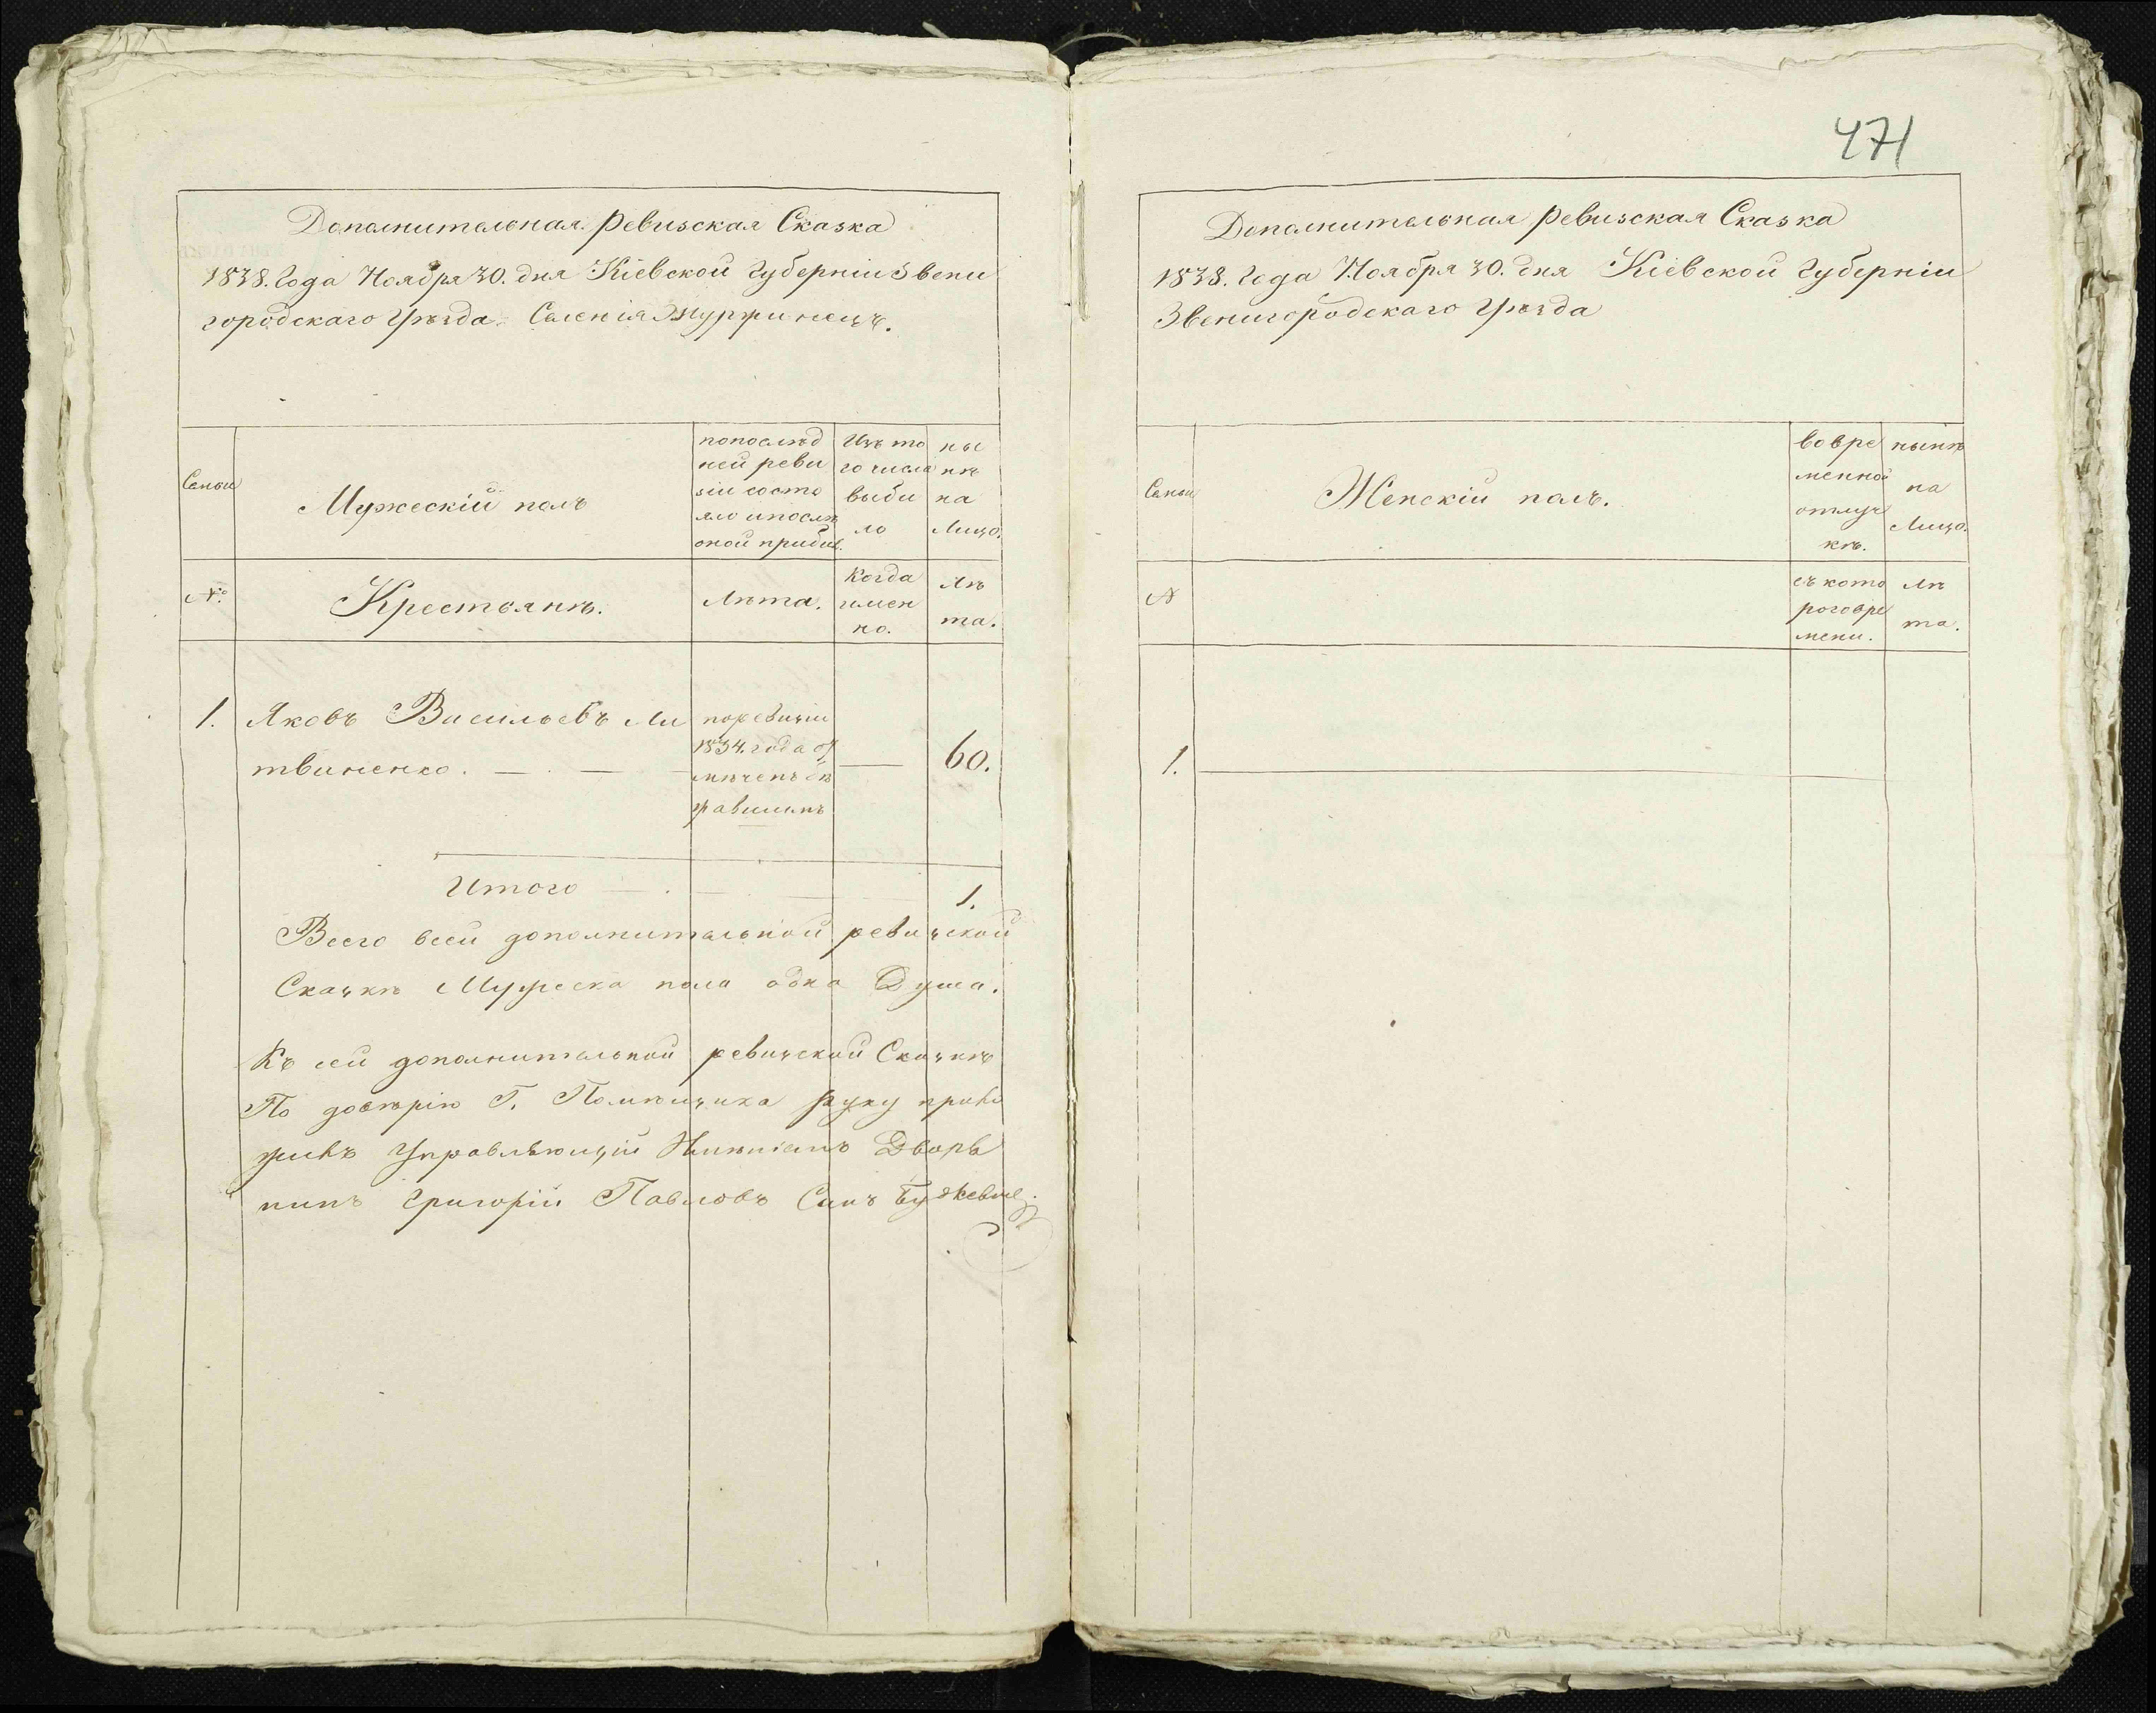 471
Дополнительная ревизская Сказка
1838. Года Ноября 30. дня Кіевской Губерніи Звени
городскаго Уѣзда Селенія Журжинецъ.
Семьи
Мужескій полъ
попослѣд
ней реви
зіи состо
яло ипослѣ
оной прибыл.
Изъ то
го числа
выбы
ло
ны
нѣ
на
Лицо.
№.
Крестьянѣ.
Лѣта.
Когда
имен
но.
Лѣ
та.
1.
Яковъ Васильевъ Ли
твиненко.
поревизіи
1834. года от
мѣченъ
60.
Итого
1.
Всего всей дополнительной ревизской
Сказкѣ Мужеска пола одна Душа.
Къ сей дополнительной ревизской Сказкѣ
По довѣрію Г. Помѣщика руку прило
жилъ Управляющій Имѣніемъ Дворя
нинъ Григорій Павловъ Сынъ
Дополнительная ревизская Сказка
1838. Года Ноября 30. дня Кіевской Губерніи
Звенигородскаго Уѣзда
Семьи
Женскій полъ.
вовре
менной
отлуч
кѣ.
нынѣ
на
Лицо.
№
съ кото
роговре
мени.
лѣ
та.
1.